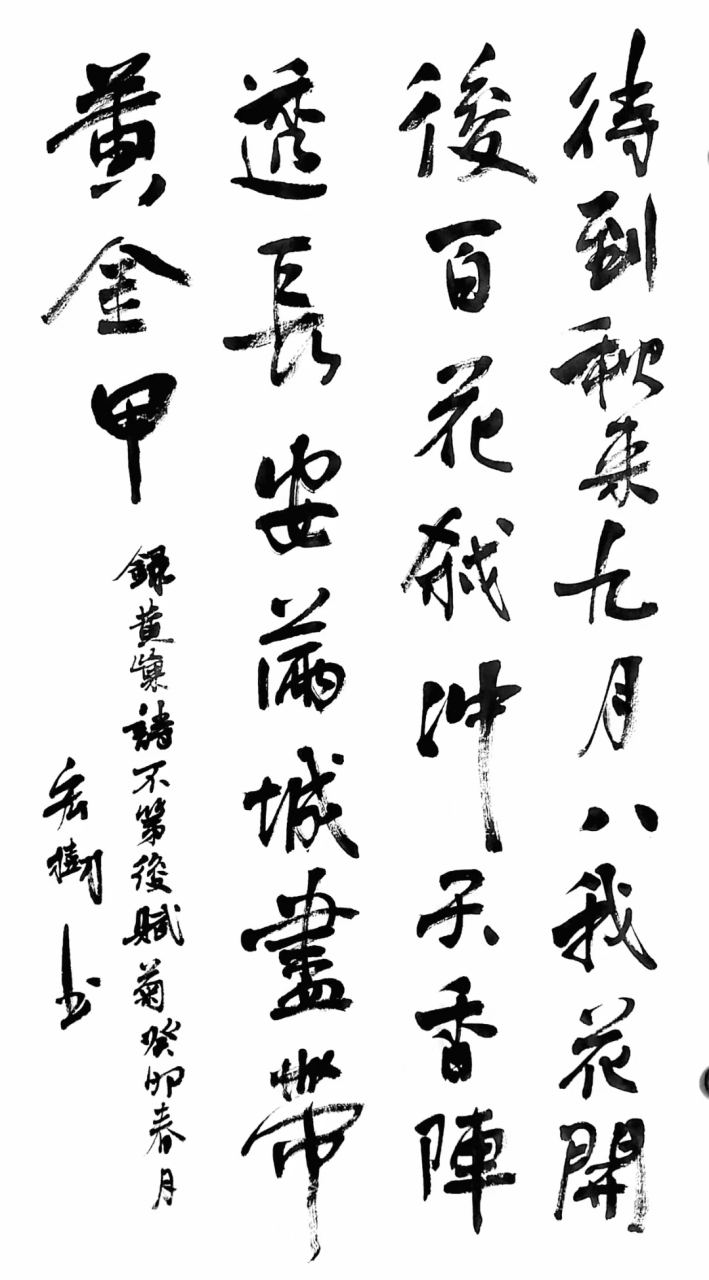 待到秋来九月八我花開
後百花殺冲天香陣
透長安滿城盡帶
黃金甲
録黄巢詩不第後賦菊癸卯春月
宏樹书